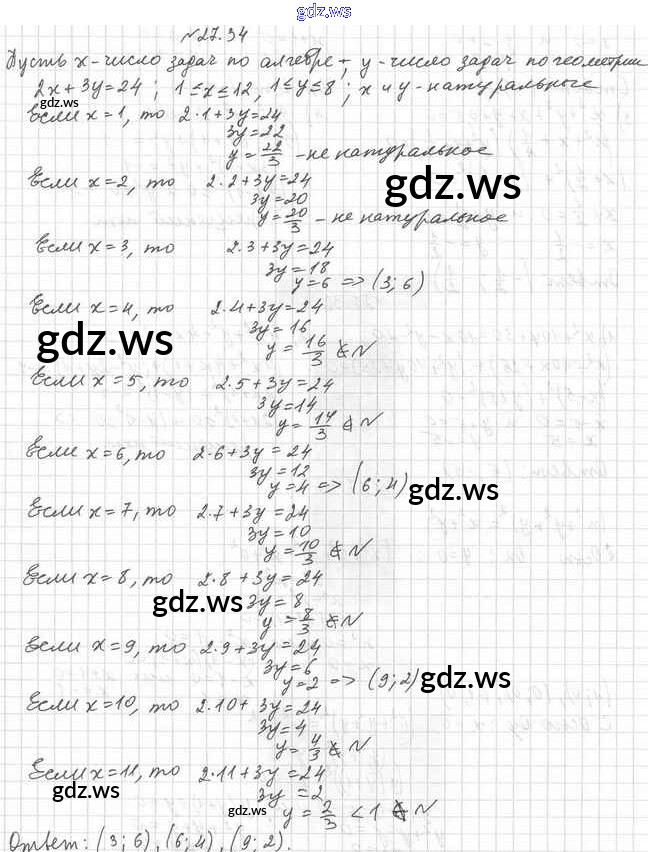 gdz.ws
№27.34
Пусть x-число задач по алгебре, y-число задач по геометрии
2x+3y=24; 1≤x≤12, 1≤y≤8; x и y-натуральные
gdz.ws
Если x=1, то 2·1+3y=24
3y=22
y=22/3 -не натуральное
Если x=2, то 2·2+3y=24
gdz.ws
3y=20
y=20/3 - не натуральное
Если x=3, то 2·3+3y=24
3y=18
y=6 => (3; 6)
Если x=4, то 2·4+3y=24
gdz.ws
3y=16
y=16/3 ∉ N
Если x=5, то 2·5+3y=24
3y=14
y=14/3 ∉ N
Если x=6, то 2·6+3y=24
3y=12
y=4 => (6; 4)
gdz.ws
Если x=7, то 2·7+3y=24
3y=10
y=10/3 ∉ N
Если x=8, то 2·8+3y=24
gdz.ws
3y=8
y=8/3 ∉ N
Если x=9, то 2·9+3y=24
3y=6
y=2 => (9; 2)
gdz.ws
Если x=10, то 2·10+3y=24
3y=4
y=4/3 ∉ N
Если x=11, то 2·11+3y=24
gdz.ws
3y=2
gdz.ws
y=2/3 <1 ∉ N
Ответ: (3; 6), (6; 4), (9; 2).